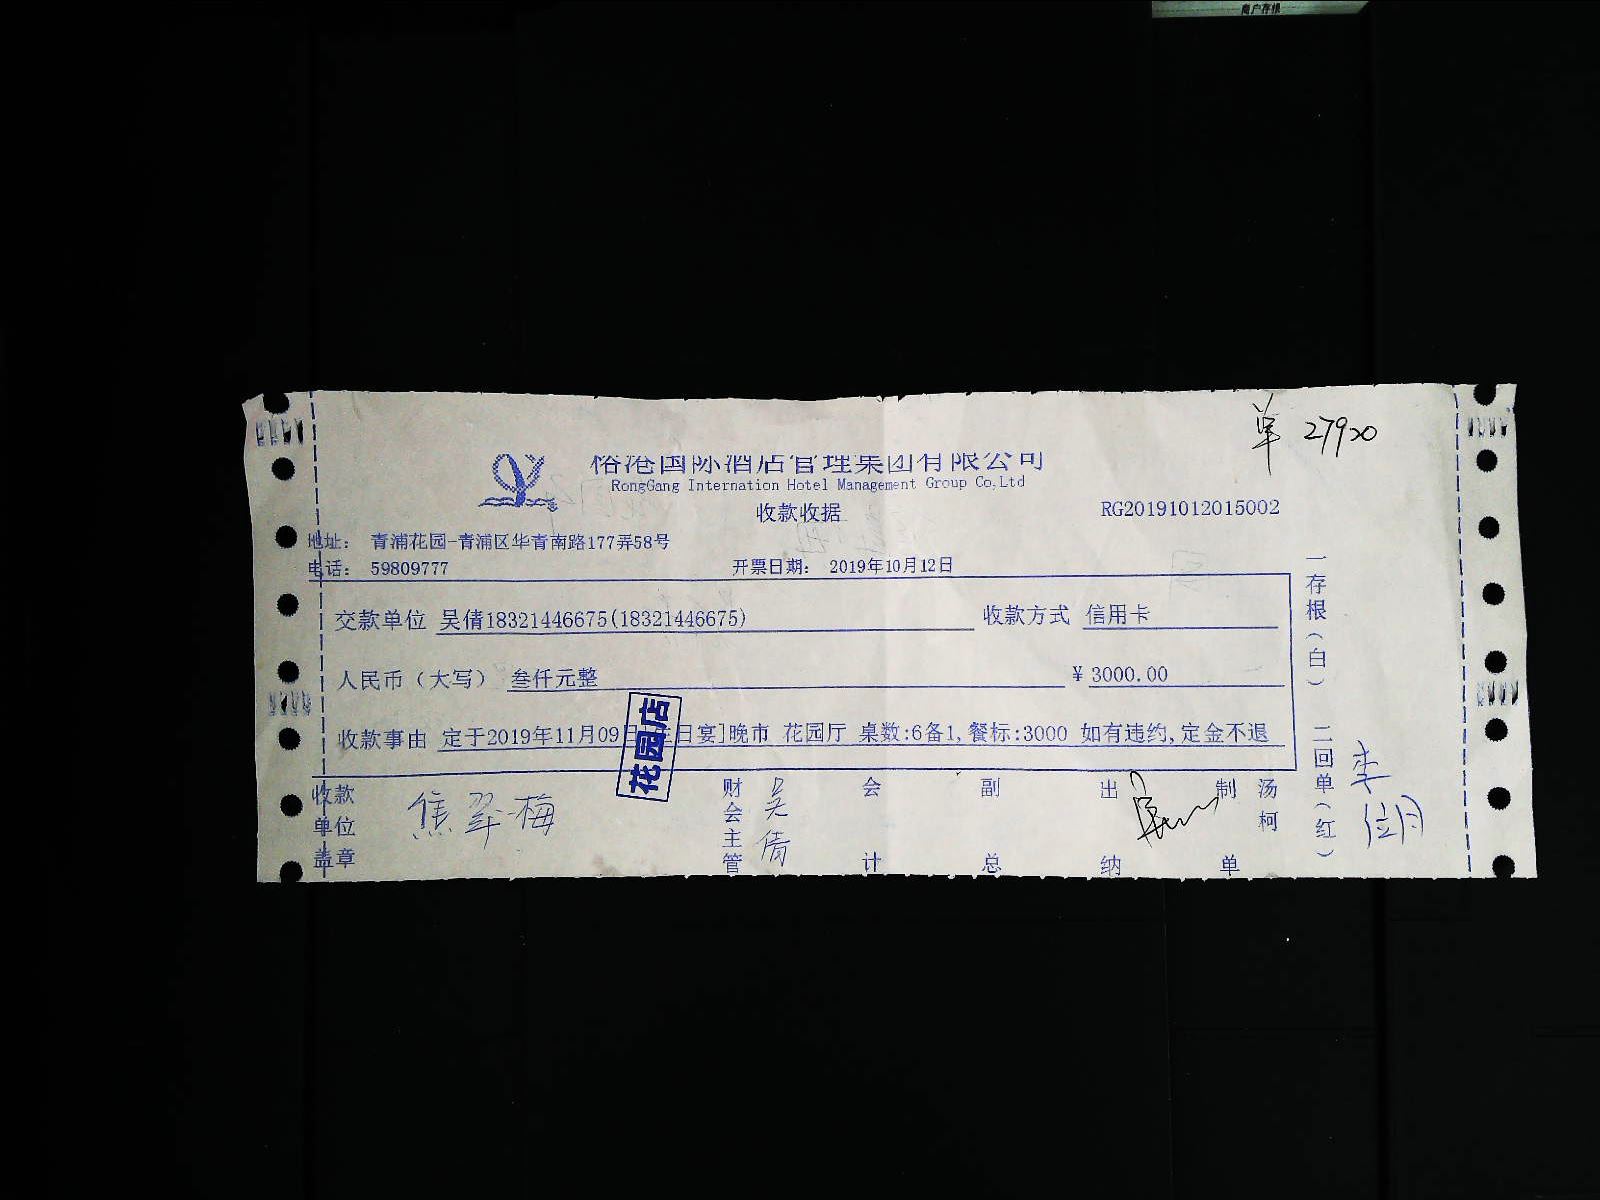 商户存根
单 27920
榕港国际酒店管理集团有限公司
RongGang Internation Hotel Management Group Co,Ltd
收款收据
RG20191012015002
地址： 青浦花园-青浦区华青南路177弄58号
电话： 59809777
开票日期： 2019年10月12日
交款单位 吴倩18321446675(18321446675)
收款方式 信用卡
人民币（大写） 叁仟元整
¥ 3000.00
收款事由 定于2019年11月09日 日宴]晚市 花园厅 桌数:6备1,餐标:3000 如有违约,定金不退
花园店
收款单位盖章 焦翠梅
财会主管 吴倩
会计
副总
出纳
制单 汤柯
一存根（白） 二回单（红）